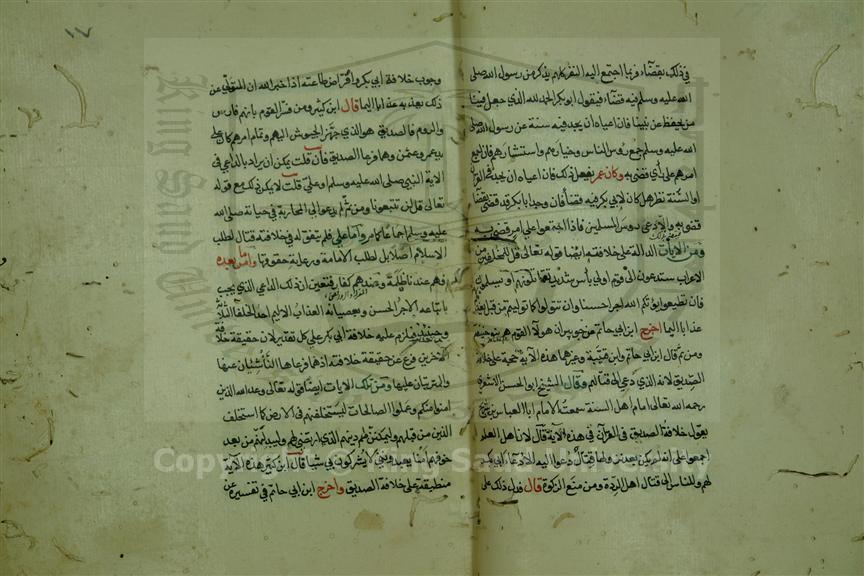 في ذلك بقضاء وربما اجتمع اليه النفر كلهم يذكر من رسول الله صلى
الله عليه وسلم فيه قضاء فيقول ابو بكر الحمد لله الذي جعل فينا
من يحفظ عن نبينا فان اعياه ان يجد فيه سنة عن رسول الله صلى
الله عليه وسلم جمع رؤس الناس وخيارهم واستشارهم فان اجمع
امرهم على رأي قضى به وكان عمر يفعل ذلك فان اعياه ان يجد في القرآن
او السنة نظر هل كان لابي بكر فيه قضاء فان وجد ابا بكر قد قضى بقضاء
قضى به والا دعى رؤس المسلمين فاذا اجتمعوا على امر قضى به
ومن الآيات الدالة على خلافته ايضا قوله تعالى قل للمخلفين من
الاعراب ستدعون الى قوم اولي بأس شديد تقاتلونهم او يسلمون
فان تطيعوا يؤتكم الله اجرا حسنا وان تتولوا كما توليتم من قبل يعذبكم
عذابا اليما اخرج ابن ابي حاتم عن جويبر ان هولاء القوم هم بنو حنيفة
ومن ثم قال ابن ابي حاتم وابن قتيبة وغيرهما هذه الآية حجة على خلافة
الصديق لانه الذي دعي الى قتالهم وقال الشيخ ابو الحسن الاشعري
رحمه الله تعالى امام اهل السنة سمعت الامام ابا العباس بن سريج
يقول خلافة الصديق في القرآن في هذه الآية قال لان اهل العلم
اجمعوا على انه لم يكن بعد نزولها قتال دعوا اليه الا دعاء ابي بكر
لهم وللناس الى قتال اهل الردة ومن منع الزكوة قال فدل ذلك على
١٧
وجوب خلافة ابي بكر وافتراض طاعته اذ اخبر الله ان المتولي عن
ذلك يعذب به عذابا اليما قال ابن كثير ومن فسر القوم بانهم فارس
والروم فالصديق هو الذي جهز الجيوش اليهم وتمام امرهم كان على
يد عمر وعثمن وهما فرعا الصديق فان قلت يمكن ان يراد بالداعي في
الآية النبي صلى الله عليه وسلم او علي قلت لا يمكن ذلك مع قوله
تعالى قل لن تتبعونا ومن ثم لم يدعوا الى المحاربة في حياته صلى الله
عليه وسلم اجماعا كما مر واما علي فلم يتفق له في خلافته قتال لطلب
الاسلام اصلا بل لطلب الامامة ورعاية حقوقها واما من بعده
فهم عندنا ظلمة وعندهم كفار فتعين ان ذلك الداعي الذي يجب
باتباعه الاجر الحسن وبعصيانه العذاب الاليم احد الخلفاء الثلثة
وحينئذ فيلزم عليه خلافة ابي بكر على كل تقدير لان حقيقة خلافة
الآخرين فرع عن حقيقة خلافته اذ هما فرعاها الناشئان عنها
والمترتبان عليها ومن تلك الآيات ايضا قوله تعالى وعد الله الذين
امنوا منكم وعملوا الصالحات ليستخلفنهم في الارض كما استخلف
الذين من قبلهم وليمكنن لهم دينهم الذي ارتضى لهم وليبدلنهم من بعد
خوفهم أمنا يعبدونني لا يشركون بي شيا قال ابن كثير هذه الآية
منطبقة على خلافة الصديق واخرج ابن ابي حاتم في تفسيره عن
Copyright © King Saud University